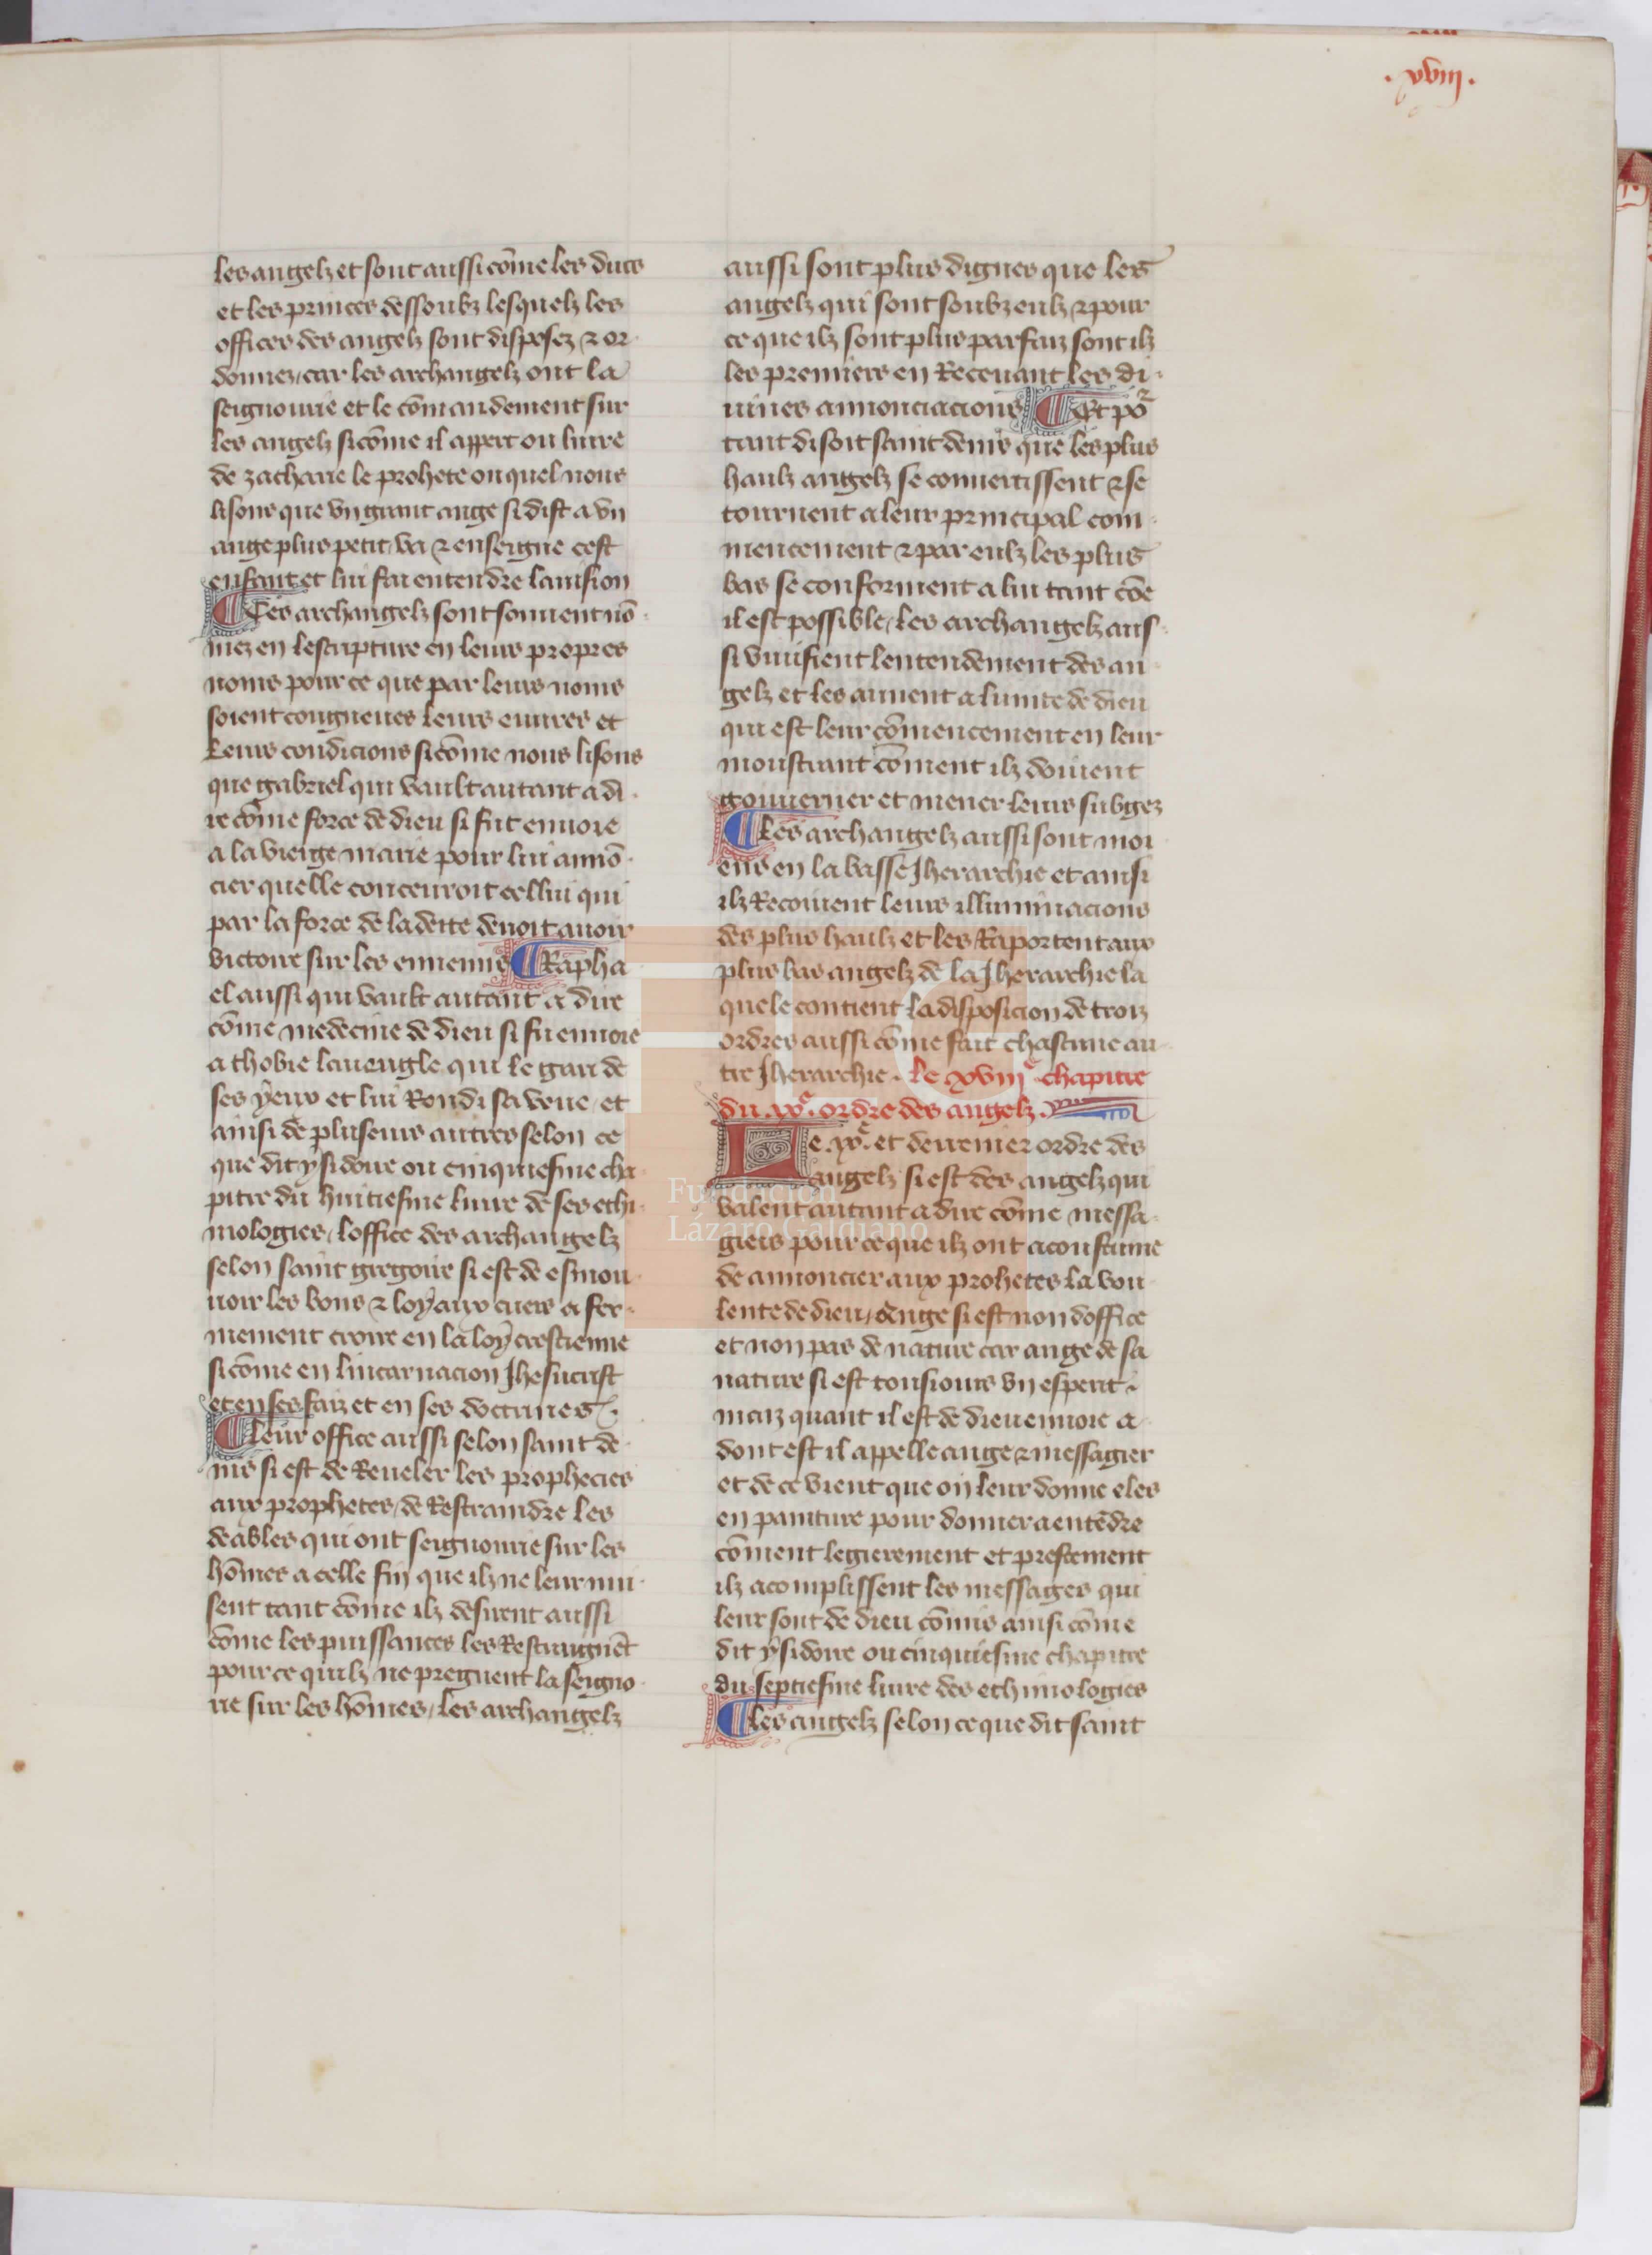 .xviii.
les angelz et sont aussi cõme les ducs
et les princes dessoubz lesquelz les
offices des angelz sont disposez ⁊ or
donnez / car les archangelz ont la
seignourie et le cõmandement sur
les angelz si cõme il appert ou liure
de zacharie le prohete ou quel nous
lisons que vn grant ange si dist a vn
ange plus petit / va ⁊ enseigne cest
enfant et lui fai entendre la uision
¶ Ces archangelz sont souuent nõ
mez en lescripture en leurs propres
noms pour ce que par leurs noms
soient congneues leurs euures et
leurs condicions si cõme nous lisons
que gabriel qui vault autant a di
re cõme force de dieu si fut enuoie
a la vierge marie pour lui annõ
cier quelle conceuroit cellui qui
par la force de la deite deuoit auoir
victoire sur les ennemis ¶ Rapha
el aussi qui vault autant a dire
cõme medecine de dieu si fu enuoie
a thobie laueugle qui le gari de
ses yeux et lui Rendi sa veue et
ainsi de pluseurs autres selon ce
que dit ysidore ou cinquiesme cha
pitre du huitiesme liure de ses ethi
mologies / loffice des archangelz
selon saint gregoire si est de esmou
uoir les bons ⁊ loyaux cuers a fer
mement croire en la loy crestienne
si cõme en lincarnacion Jhesucrist
et en ses faiz et en ses doctrines.
¶ Leur office aussi selon saint de
nis si est de Reueler les prophecies
aux prophetes / de Restraindre les
deables qui ont seignourie sur les
hõmes a celle fin que ilz ne leur nui
sent tant cõme ilz desirent aussi
cõme les puissances les Restraignẽt
pour ce quilz ne preguent la seigno
rie sur les hõmes / les archangelz
aussi sont plus dignes que les
angelz qui sont soubz eulz ⁊ pour
ce que ilz sont plus parfaiz sont ilz
les premiers en Receuant les di
uines annonciacions ¶ Et po^r
tant disoit saint denis que les plus
haulz angelz se conuertissent ⁊ se
tournent a leur principal com
mencement ⁊ par eulz les plus
bas se conforment a lui tant cõe
il est possible / les archangelz aus
si viuifient lentendement des an
gelz et les aunent a lunite de dieu
qui est leur cõmencement en leur
monstrant cõment ilz doiuent
gouuerner et mener leurs subgez
¶ les archangelz aussi sont moi
ens en la basse Jherarchie et ainsi
ilz Recoiuent leurs illuminacions
des plus haulz et les Raportent aux
plus bas angelz de la Jherarchie la
quele contient la disposicion de troiz
ordres aussi cõme fait chascune au
tre Jherarchie. le xviii^e chapitre
du .ix^e. ordre des angelz.
Le .ix^e. et derrenier ordre des
angelz si est des angelz qui
valent autant a dire cõme messa
giers pour ce que ilz ont acoustume
de annoncier aux prohetes la vou
lente de dieu / ange si est non doffice
et non pas de nature car ange de sa
nature si est tousiours vn esperit.
maiz quant il est de dieu enuoie a
dont est il appelle ange ⁊ messagier
et de ce vient que on leur donne eles
en painture pour donner a entẽdre
cõment legierement et prestement
ilz acomplissent les messages qui
leur sont de dieu cõmis ainsi cõme
dit ysidore ou cinquiesme chapitre
du septiesme liure des ethimologies
¶ les angelz selon ce que dit saint
Fundación
Lázaro Galdiano